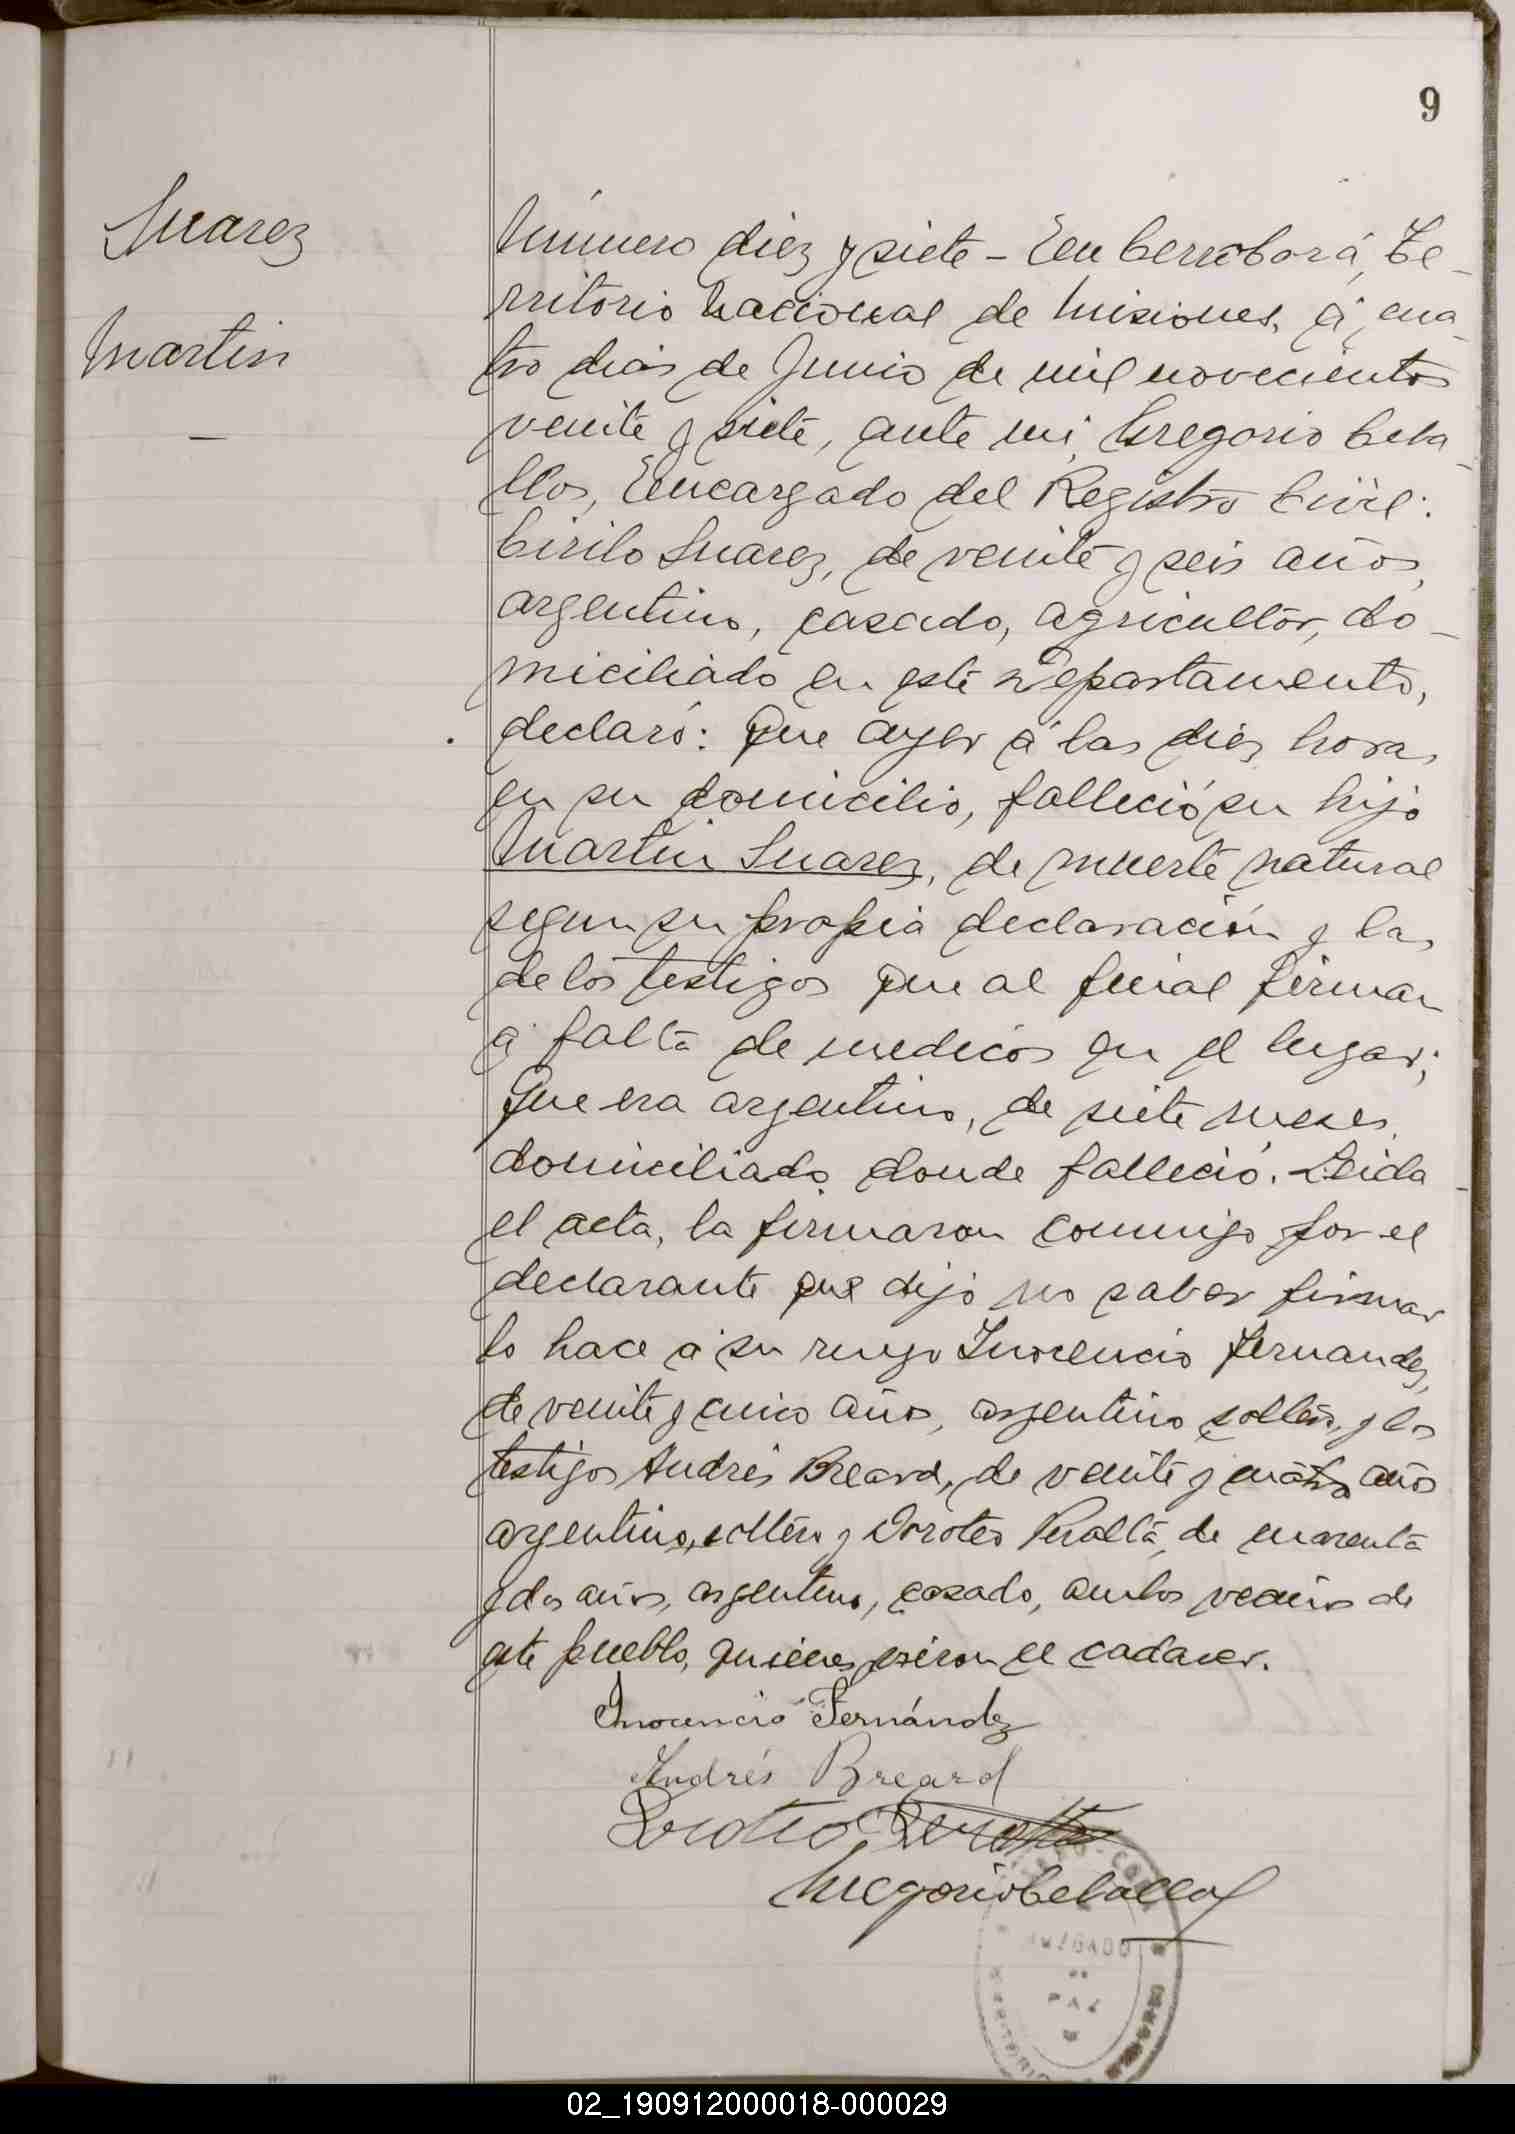 9
Suarez
Martin
Número diez y siete - En Cerro Corá, Te-
rritorio Nacional de Misiones, á cua-
tro dias de Junio de mil novecientos
veinte y siete, ante mi, Gregorio Ceba-
llos, Encargado del Registro Civil:
Cirilo Suarez, de veinte y seis años,
argentino, casado, agricultor, do-
miciliado en este Departamento,
declaró: Que ayer á las diez horas
en su domicilio, falleció su hijo
Martin Suarez, de muerte natural
segun su propia declaración y las
de los testigos que al final firman
á falta de medicos en el lugar;
Que era argentino, de siete meses,
domiciliado donde falleció. Leida
el acta, la firmaron conmigo por el
declarante que dijo no saber firmar
lo hace á su ruego Inocencio Fernandez,
de veinte y cinco años, argentino soltero, y los
testigos Andrés Breard, de veinte y cuatro años
argentino, soltero y Doroteo Peralta, de cuarenta
y dos años, argentino, casado, ambos vecinos de
este pueblo, quienes vieron el cadaver.
Inocencio Fernández
Andrés Breard
Doroteo Peralta
Gregorio Ceballos
JUZGADO
DE
PAZ
02_190912000018-000029